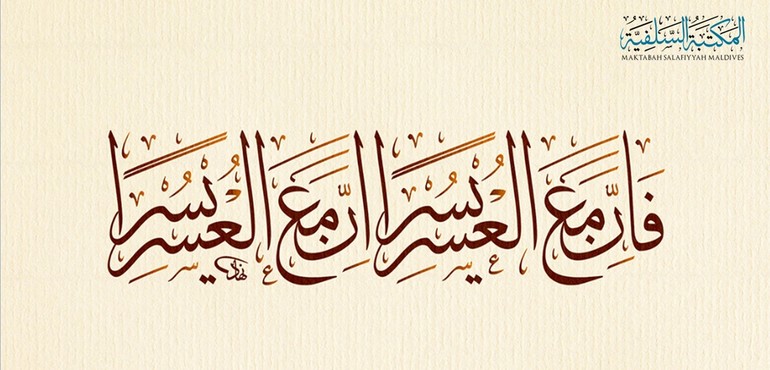 المكتبة السلفية
MAKTABAH SALAFIYYAH MALDIVES
فَاِنَّ مَعَ الْعُسْرِ يُسْرًا اِنَّ مَعَ الْعُسْرِ يُسْرًا